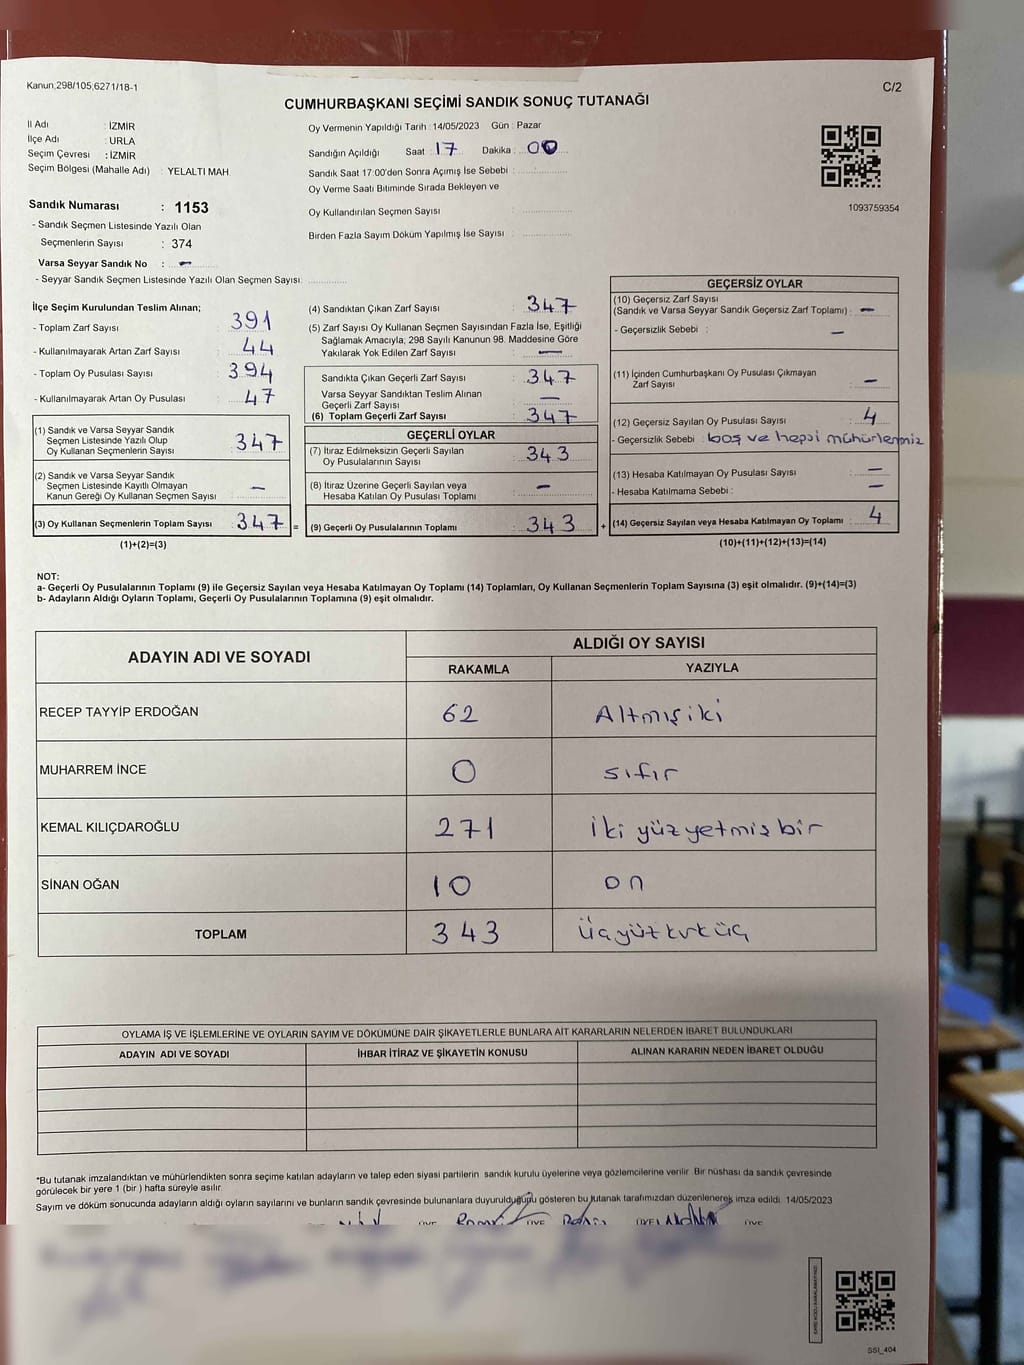 Kanun,298/105,6271/18-1
C/2
CUMHURBAŞKANI SEÇİMİ SANDIK SONUÇ TUTANAĞI
İl Adı : İZMİR
İlçe Adı : URLA
Seçim Çevresi : İZMİR
Seçim Bölgesi (Mahalle Adı) : YELALTI MAH.
Sandık Numarası : 1153
- Sandık Seçmen Listesinde Yazılı Olan
Seçmenlerin Sayısı : 374
Varsa Seyyar Sandık No : -
- Seyyar Sandık Seçmen Listesinde Yazılı Olan Seçmen Sayısı:
Oy Vermenin Yapıldığı Tarih :14/05/2023 Gün : Pazar
Sandığın Açıldığı Saat : 17 Dakika : 00
Sandık Saat 17:00'den Sonra Açımış İse Sebebi :
Oy Verme Saati Bitiminde Sırada Bekleyen ve
Oy Kullandırılan Seçmen Sayısı :
Birden Fazla Sayım Döküm Yapılmış İse Sayısı :
1093759354
İlçe Seçim Kurulundan Teslim Alınan;
- Toplam Zarf Sayısı : 391
- Kullanılmayarak Artan Zarf Sayısı : 44
- Toplam Oy Pusulası Sayısı : 394
- Kullanılmayarak Artan Oy Pusulası : 47
(1) Sandık ve Varsa Seyyar Sandık
Seçmen Listesinde Yazılı Olup
Oy Kullanan Seçmenlerin Sayısı : 347
(2) Sandık ve Varsa Seyyar Sandık
Seçmen Listesinde Kayıtlı Olmayan
Kanun Gereği Oy Kullanan Seçmen Sayısı : -
(3) Oy Kullanan Seçmenlerin Toplam Sayısı : 347 =
(1)+(2)=(3)
(4) Sandıktan Çıkan Zarf Sayısı : 347
(5) Zarf Sayısı Oy Kullanan Seçmen Sayısından Fazla İse, Eşitliği
Sağlamak Amacıyla, 298 Sayılı Kanunun 98. Maddesine Göre
Yakılarak Yok Edilen Zarf Sayısı : -
Sandıkta Çıkan Geçerli Zarf Sayısı : 347
Varsa Seyyar Sandıktan Teslim Alınan
Geçerli Zarf Sayısı : -
(6) Toplam Geçerli Zarf Sayısı : 347
GEÇERLİ OYLAR
(7) İtiraz Edilmeksizin Geçerli Sayılan
Oy Pusulalarının Sayısı : 343
(8) İtiraz Üzerine Geçerli Sayılan veya
Hesaba Katılan Oy Pusulası Toplamı : -
(9) Geçerli Oy Pusulalarının Toplamı : 343 +
GEÇERSİZ OYLAR
(10) Geçersiz Zarf Sayısı
(Sandık ve Varsa Seyyar Sandık Geçersiz Zarf Toplamı) : -
- Geçersizlik Sebebi : -
(11) İçinden Cumhurbaşkanı Oy Pusulası Çıkmayan
Zarf Sayısı : -
(12) Geçersiz Sayılan Oy Pusulası Sayısı : 4
- Geçersizlik Sebebi : boş ve hepsi
(13) Hesaba Katılmayan Oy Pusulası Sayısı : -
- Hesaba Katılmama Sebebi : -
(14) Geçersiz Sayılan veya Hesaba Katılmayan Oy Toplamı : 4
(10)+(11)+(12)+(13)=(14)
NOT:
a- Geçerli Oy Pusulalarının Toplamı (9) ile Geçersiz Sayılan veya Hesaba Katılmayan Oy Toplamı (14) Toplamları, Oy Kullanan Seçmenlerin Toplam Sayısına (3) eşit olmalıdır. (9)+(14)=(3)
b- Adayların Aldığı Oyların Toplamı, Geçerli Oy Pusulalarının Toplamına (9) eşit olmalıdır.
ADAYIN ADI VE SOYADI
ALDIĞI OY SAYISI
RAKAMLA YAZIYLA
RECEP TAYYİP ERDOĞAN 62 Altmışiki
MUHARREM İNCE 0 sıfır
KEMAL KILIÇDAROĞLU 271 iki yüz yetmiş bir
SİNAN OĞAN 10 on
TOPLAM 343 Üçyüzkırküç
OYLAMA İŞ VE İŞLEMLERİNE VE OYLARIN SAYIM VE DÖKÜMÜNE DAİR ŞİKAYETLERLE BUNLARA AİT KARARLARIN NELERDEN İBARET BULUNDUKLARI
ADAYIN ADI VE SOYADI İHBAR İTİRAZ VE ŞİKAYETİN KONUSU ALINAN KARARIN NEDEN İBARET OLDUĞU
*Bu tutanak imzalandıktan ve mühürlendikten sonra seçime katılan adayların ve talep eden siyasi partilerin sandık kurulu üyelerine veya gözlemcilerine verilir. Bir nüshası da sandık çevresinde
görülecek bir yere 1 (bir ) hafta süreyle asılır.
Sayım ve döküm sonucunda adayların aldığı oyların sayılarını ve bunların sandık çevresinde bulunanlara duyurulduğunu gösteren bu tutanak tarafımızdan düzenlenerek imza edildi. 14/05/2023
SSI_404